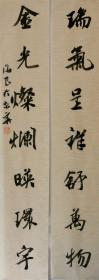 瑞氣呈祥舒萬物
金光燦爛暎環宇